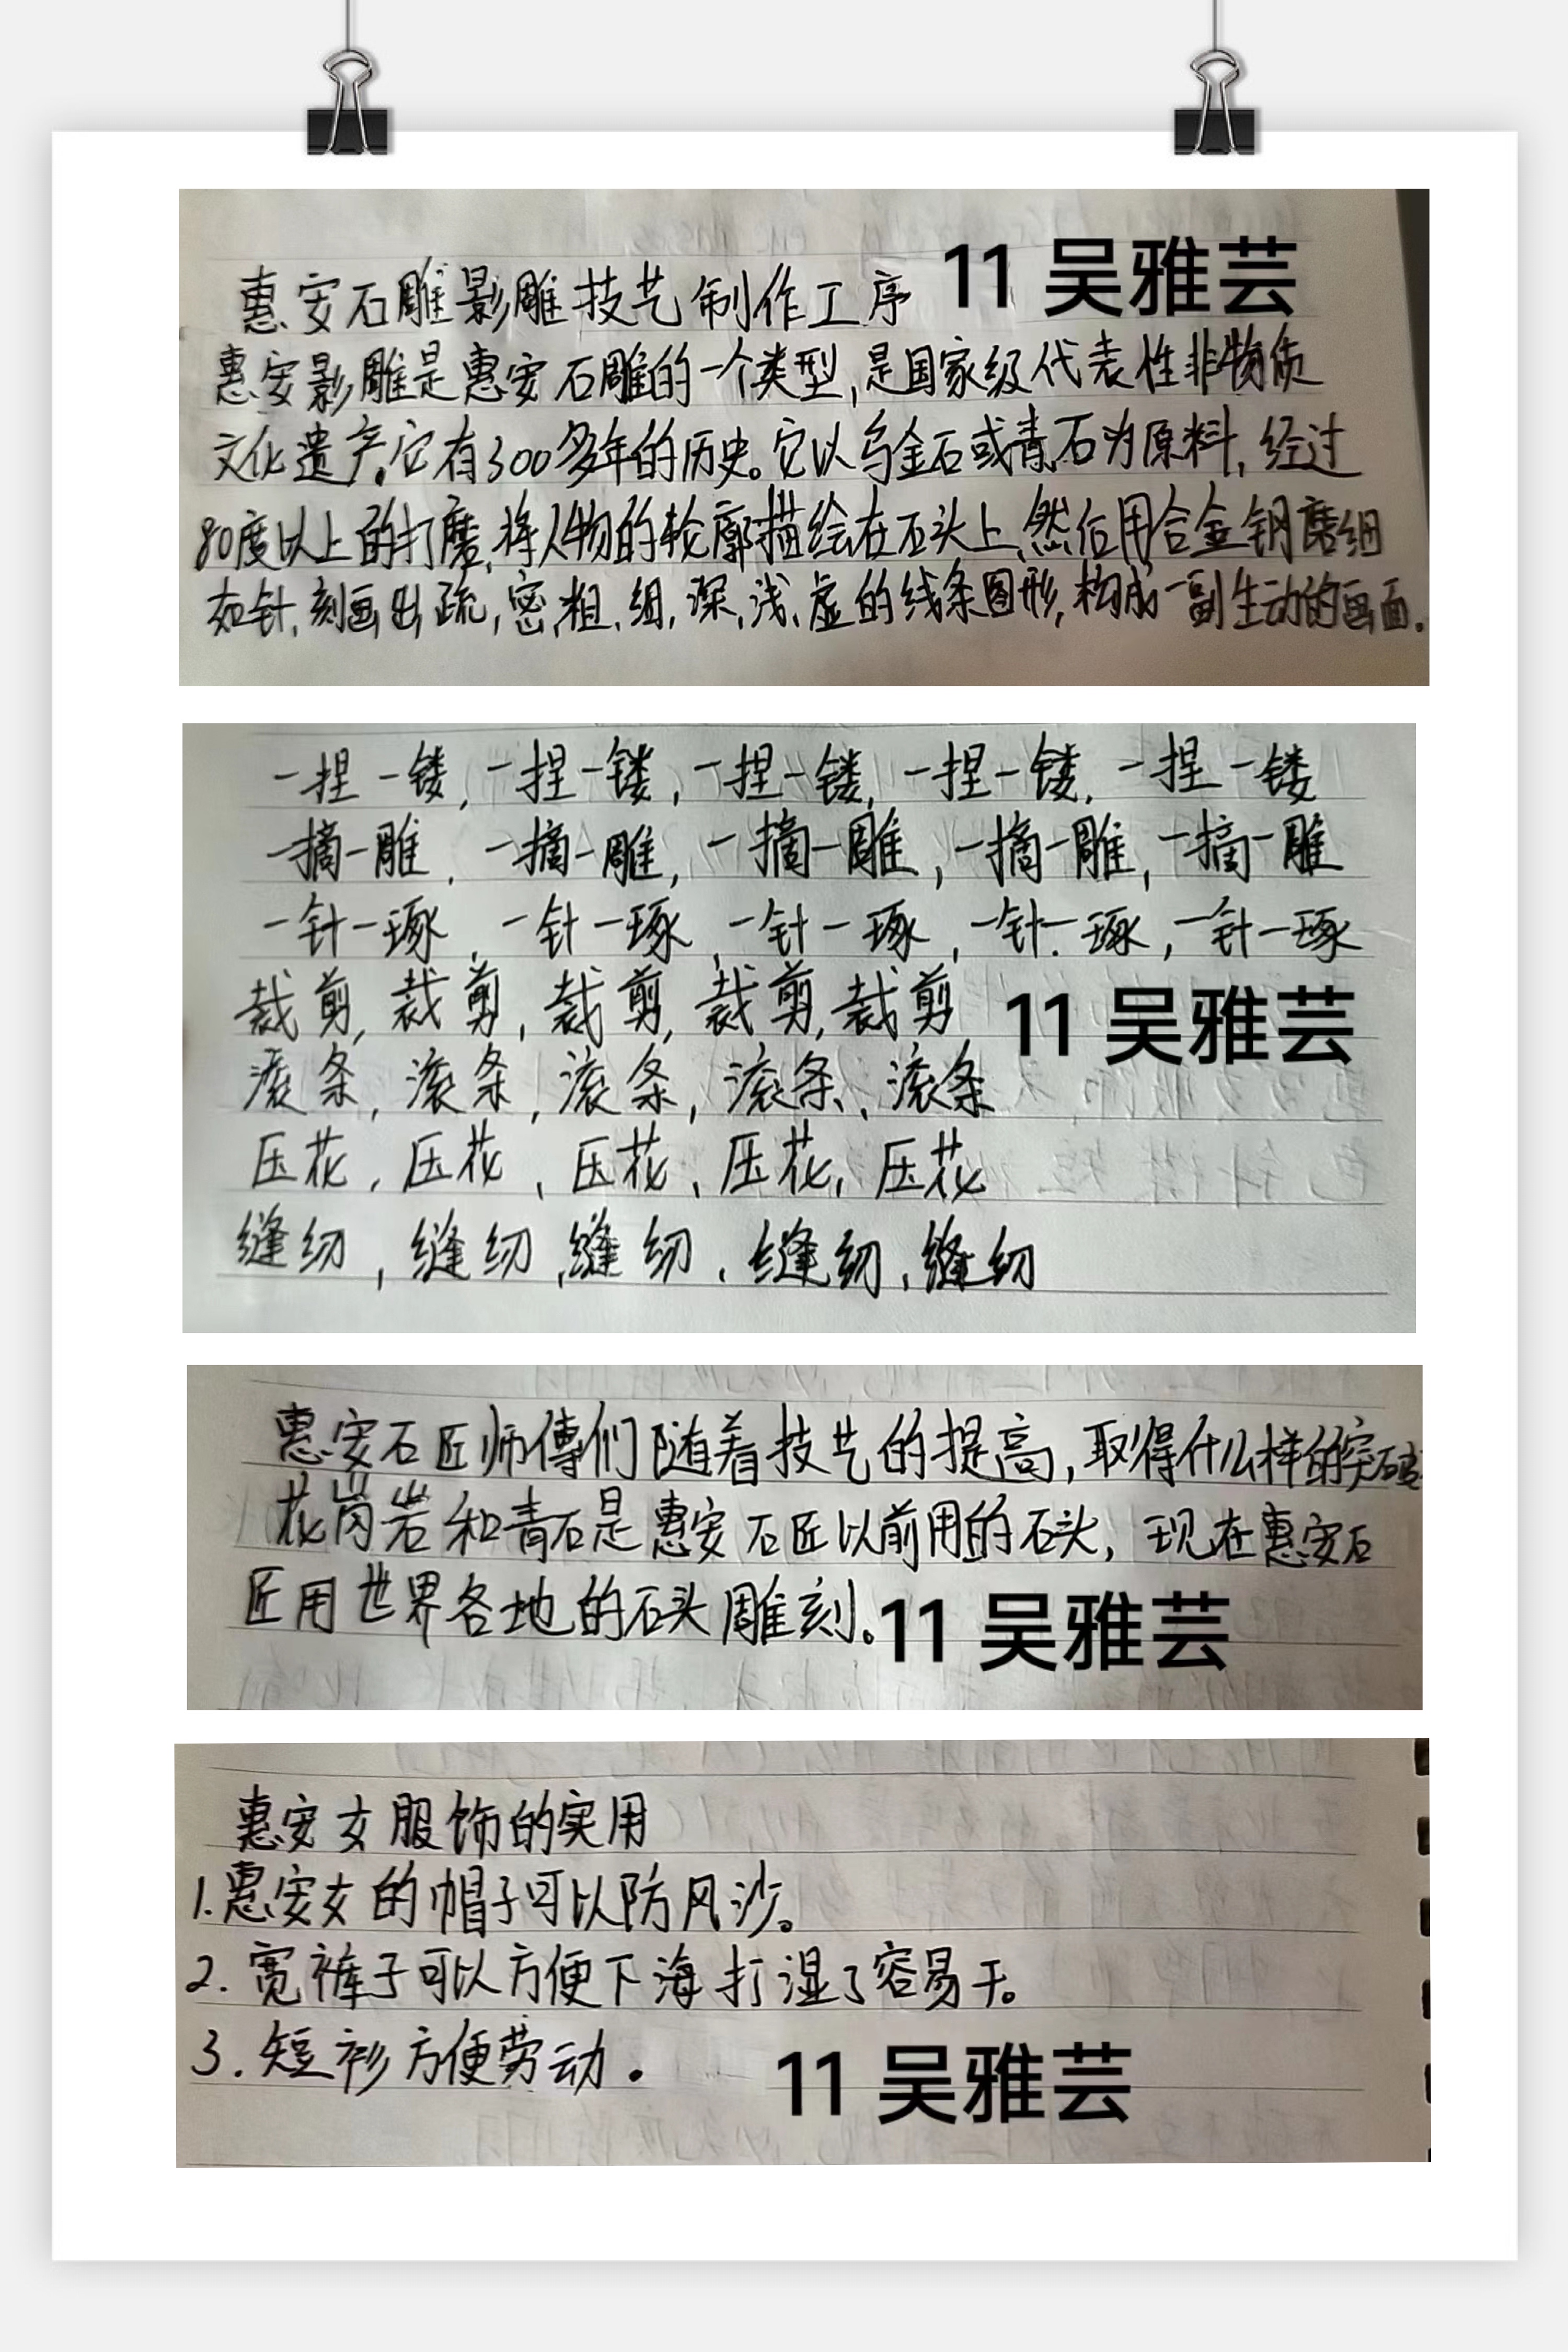 惠安石雕影雕技艺制作工序 11 吴雅芸
惠安影雕是惠安石雕的一个类型,是国家级代表性非物质
文化遗产。它有300多年的历史。它以乌金石或青石为原料,经过
80度以上的打磨,将人物的轮廓描绘在石头上,然后用合金钢磨细
如针,刻画出疏,密,粗,细,深,浅,虚的线条图形,构成一副生动的画面。
一捏一镂,一捏一镂,一捏一镂,一捏一镂,一捏一镂
一摘一雕,一摘一雕,一摘一雕,一摘一雕,一摘一雕
一针一琢,一针一琢,一针一琢,一针一琢,一针一琢
裁剪,裁剪,裁剪,裁剪,裁剪
11 吴雅芸
滚条,滚条,滚条,滚条,滚条
压花,压花,压花,压花,压花
缝纫,缝纫,缝纫,缝纫,缝纫
惠安石匠师傅们随着技艺的提高,取得什么样的突破
花岗岩和青石是惠安石匠以前用的石头,现在惠安石
匠用世界各地的石头雕刻。11 吴雅芸
惠安女服饰的实用
1.惠安女的帽子可以防风沙。
2.宽裤子可以方便下海打湿了容易干。
3.短衫方便劳动.
11 吴雅芸